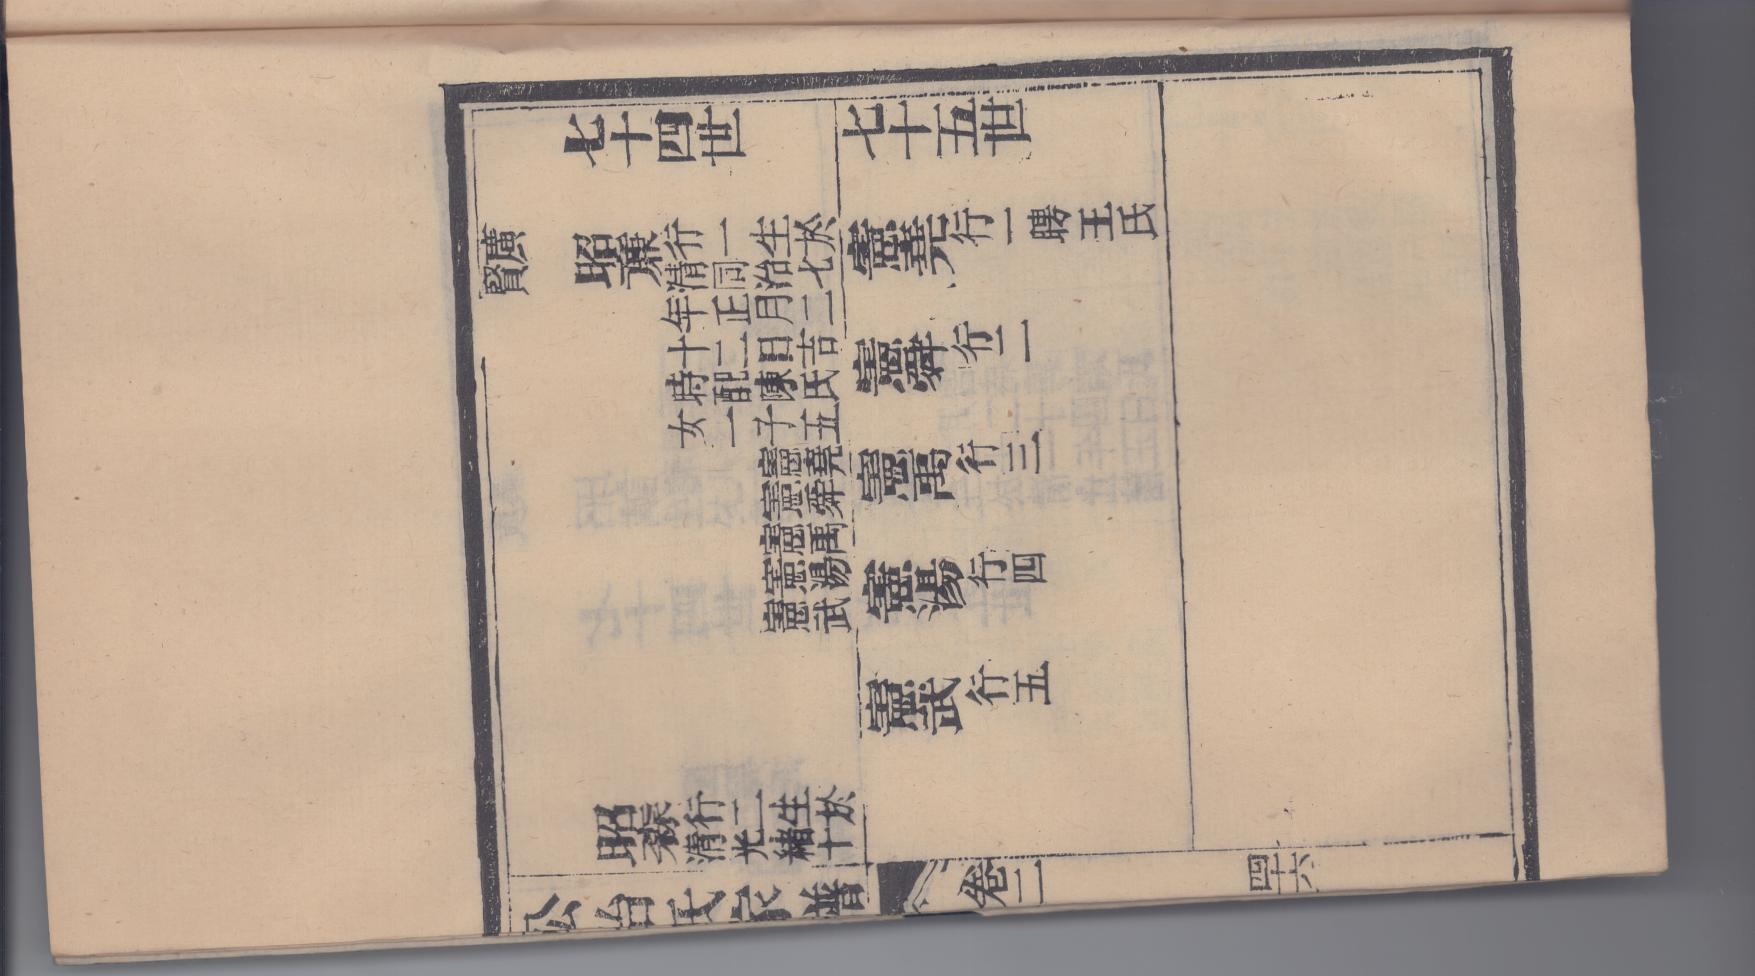 七十四世
七十五世
廣賢
昭廉
行一生於
清同治七
年正月二
十二日吉
時配陳氏
女一子五
憲堯
憲舜
憲禹
憲湯
憲武
憲堯行一聘王氏
憲舜行二
憲禹行三
憲湯行四
憲武行五
昭
行二生於
清光緒十
公冶氏家譜 卷二 四十六